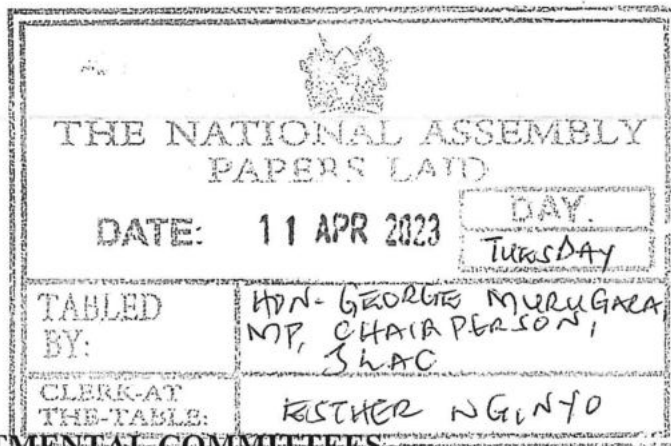 THE NATIONAL ASSEMBLY
PAPERS LAID
DATE: 11 APR 2023
DAY.
TUESDAY
TABLED BY:
HON. GEORGE MURUGARA,
MP, CHAIRPERSON,
JLAC
CLERK-AT THE-TABLE:
ESTHER NGINYO
COMMITTEES